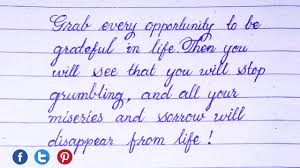 Grab every opportunity to be
grateful in life. Then you
will see that you will stop
grumbling, and all your
miseries and sorrow will
disappear from life !